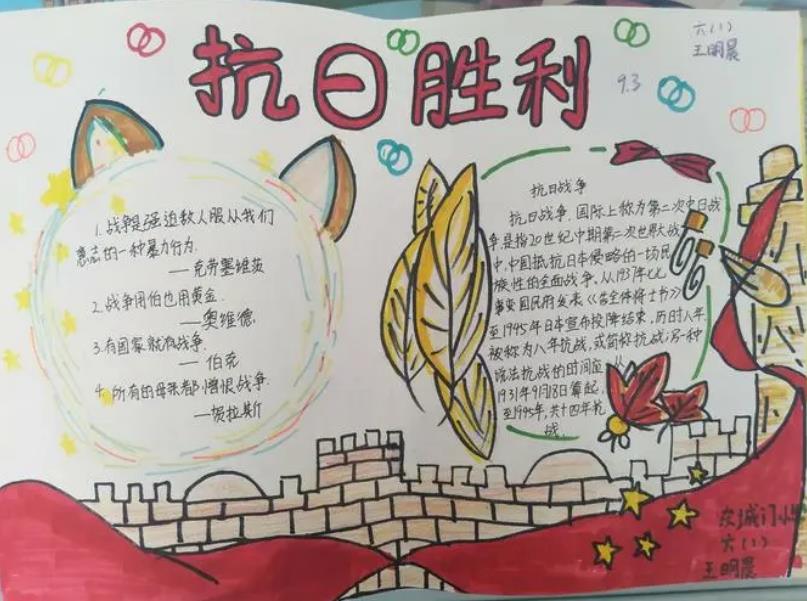 抗日胜利
六(1)
王明晨
9.3
1.战争是强迫敌人服从我们
意志的一种暴力行为.
——克劳塞维茨
2.战争用伯也用黄金.
——奥维德
3.有国家就有战争.
——伯克
4.所有的母亲都憎恨战争.
——贺拉斯
抗日战争
抗日战争,国际上称为第二次中日战
争,是指20世纪中期第二次世界大战
中,中国抵抗日本侵略的一场民
族性的全面战争。从1937年七七
事变国民府发表《告全体将士书》
至1945年日本宣布投降结束,历时八年,
被称为八年抗战,或简称抗战,另一种
说法抗战的时间应从
1931年9月18日算起,
至1945年,共十四年抗
战.
城门小学
六(1)
王明晨